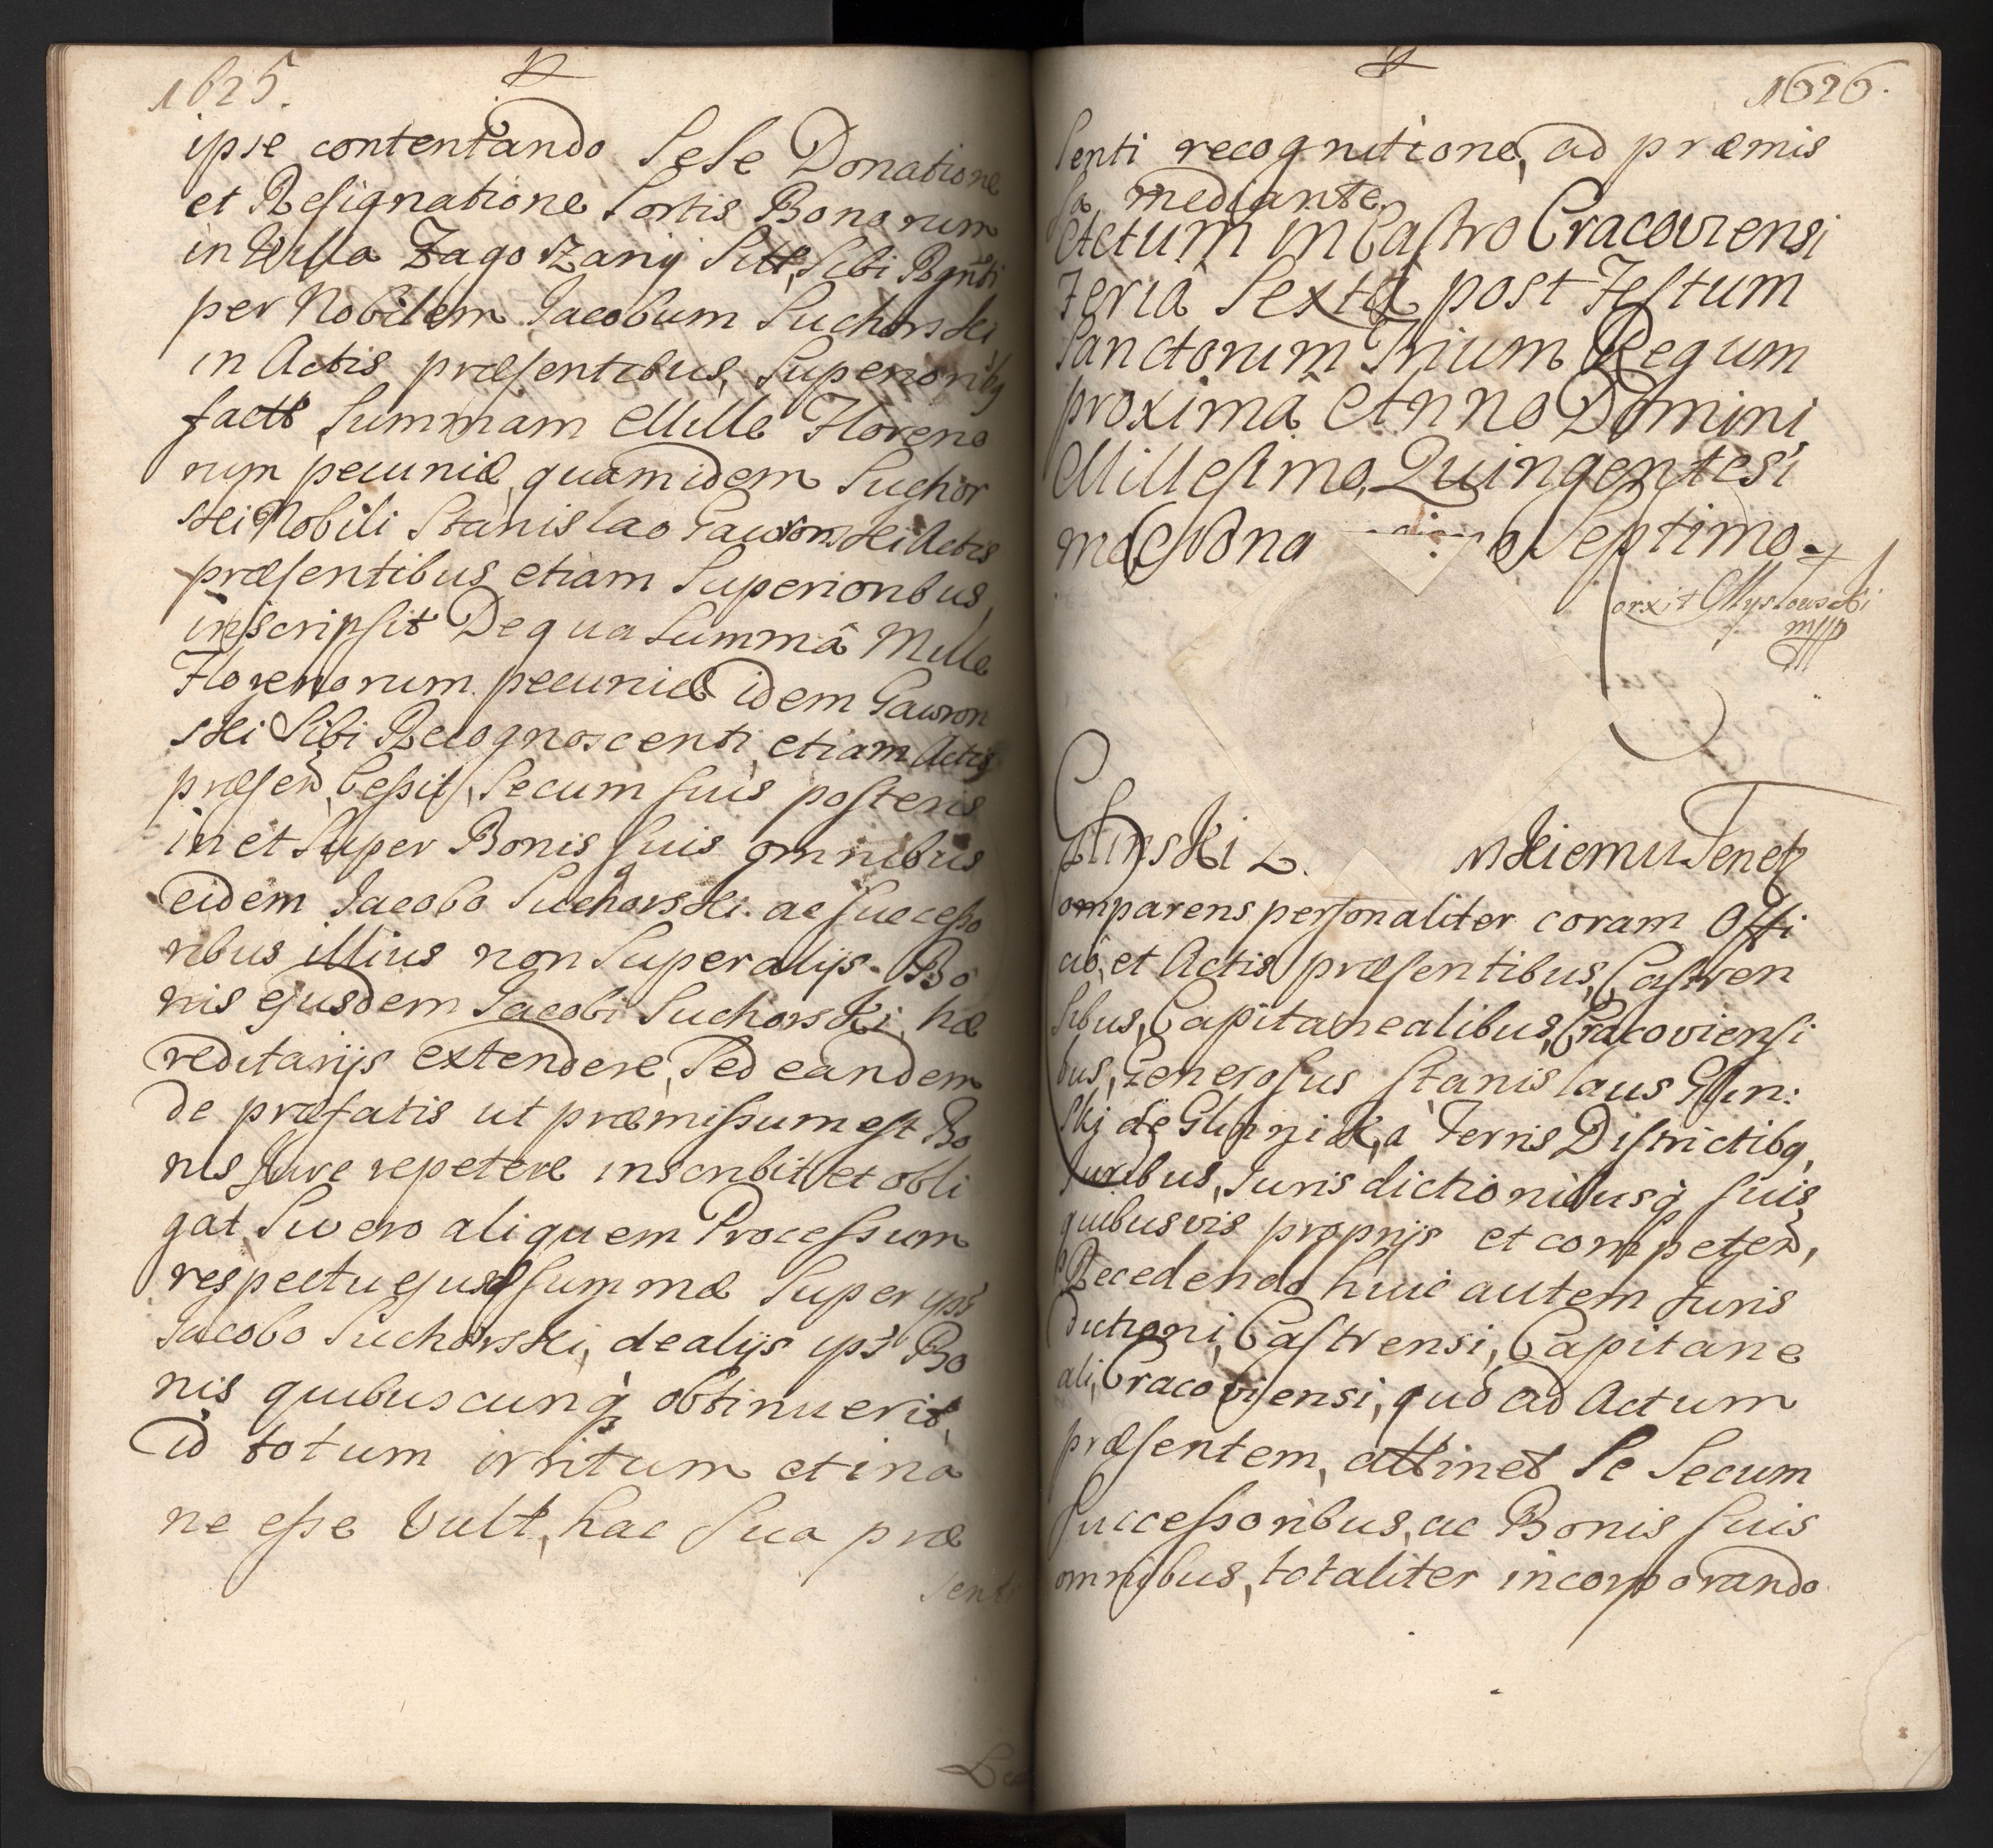 1625.
ipse contentando Sese Donatione
et Resignatione Sortis Bonorum
in Villa Zagorzany Sitt, Sibi Rgnti
per Nobilem Jacobum Suchorski
in Actis præsentibus, Superioribq
factt Summam Mille Floreno
rum pecuniæ, quam idem Suchor
ski Nobili Stanislao Gawronski Actis
præsentibus etiam Superioribus,
inscripsit De qua Summâ Mille
Florenorum pecuniæ idem Gawron
ski Sibi Recognoscenti, etiam Actis
præsen, Cessit, Secum suis posteris
in et Super Bonis suis omnibus
eidem Jacobo Suchorski ac Successo
ribus illius non Super alijs Bo
nis ejusdem Jacobi Suchorski, hæ
reditarijs extendere, Sed eandem
de præfatis ut præmissum est Bo
nis Jure repetere inscribit et obli
gat, Si vero aliquem Processum
respectu ejusd Summæ Super ips
Jacobo Suchorski, de alijs ips Bo
nis quibuscunq obtinuerit,
id totum irritum et ina
ne esse Vult, hac Sua præ
senti
1626.
senti recognitione, ad præmis
sa mediante.
Actum in Castro Cracoviensi
Feria Sexta post Festum
Sanctorum Trium Regum
proximâ Anno Domini
Millesimo, Quingentesi
mo Nona Septimo.
Mysłowski
mpp
Glinski nskiemu Tenetz
omparens personaliter coram Offi
cio, et Actis præsentibus, Castren
sibus, Capitanealibus, Cracoviensi
bus, Generosus Stanislaus Glin:
ski de Gliniik, a Terris Districtibq,
Juribus, Jurisdictionibusq suis
quibusvis proprijs et competen,
Recedendo huic autem Juris
dictioni, Castrensi, Capitane
ali, Cracoviensi, quo ad Actum
præsentem, attinet Se Secum
Successoribus, ac Bonis suis
omnibus, totaliter incorporando